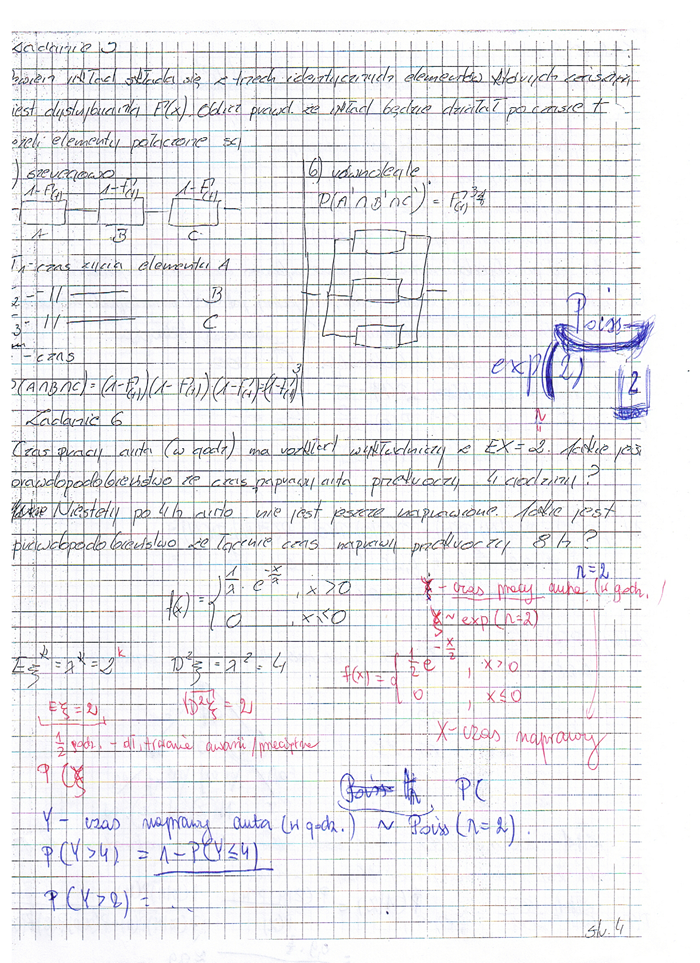 Zadanie 5
układ składa się z trzech identycznych elementów których
jest dystrybuanta F(x). Oblicz prawd. że układ będzie działał po czasie t
jeżeli elementy połączone są
) szeregowo
b) równolegle
1-F(t) 1-F(t) 1-F(t)
P(A'∩B'∩C')' =
A B C
T1-czas życia elementu A
2 -||- B
3 -||- C
- czas
P(A∩B∩C) = (1-F(t))(1-F(t))(1-F(t)) = (1-F(t))³
Poiss
exp(2)
2
Zadanie 6
Czas pracy auta (w godz) ma rozkład wykładniczy z EX=2. Jakie jest
prawdopodobieństwo że czas naprawy auta przekroczy 4 godziny?
Niestety po 4h auto nie jest jeszcze naprawione. Jakie jest
prawdopodobieństwo że łącznie czas naprawy przekroczy 8h?
λ=2
f(x) = { 1/λ · e^(-x/λ) , x>0
0 , x≤0
- czas pracy auta (w godz.)
ξ ~ exp(λ=2)
Eξ^k = λ^k = 2^k
D²ξ = λ² = 4
f(x) = { 1/2 e^(-x/2) , x>0
0 , x≤0
Eξ = 2
√D²ξ = 2
X - czas naprawy
1/2 godz. - dł. trwanie awarii / przeciętnie
P(ξ
Poiss P(
Y - czas naprawy auta (w godz.) ~ Poiss(λ=2).
P(Y>4) = 1-P(Y≤4)
P(Y>2) = ...
str. 4